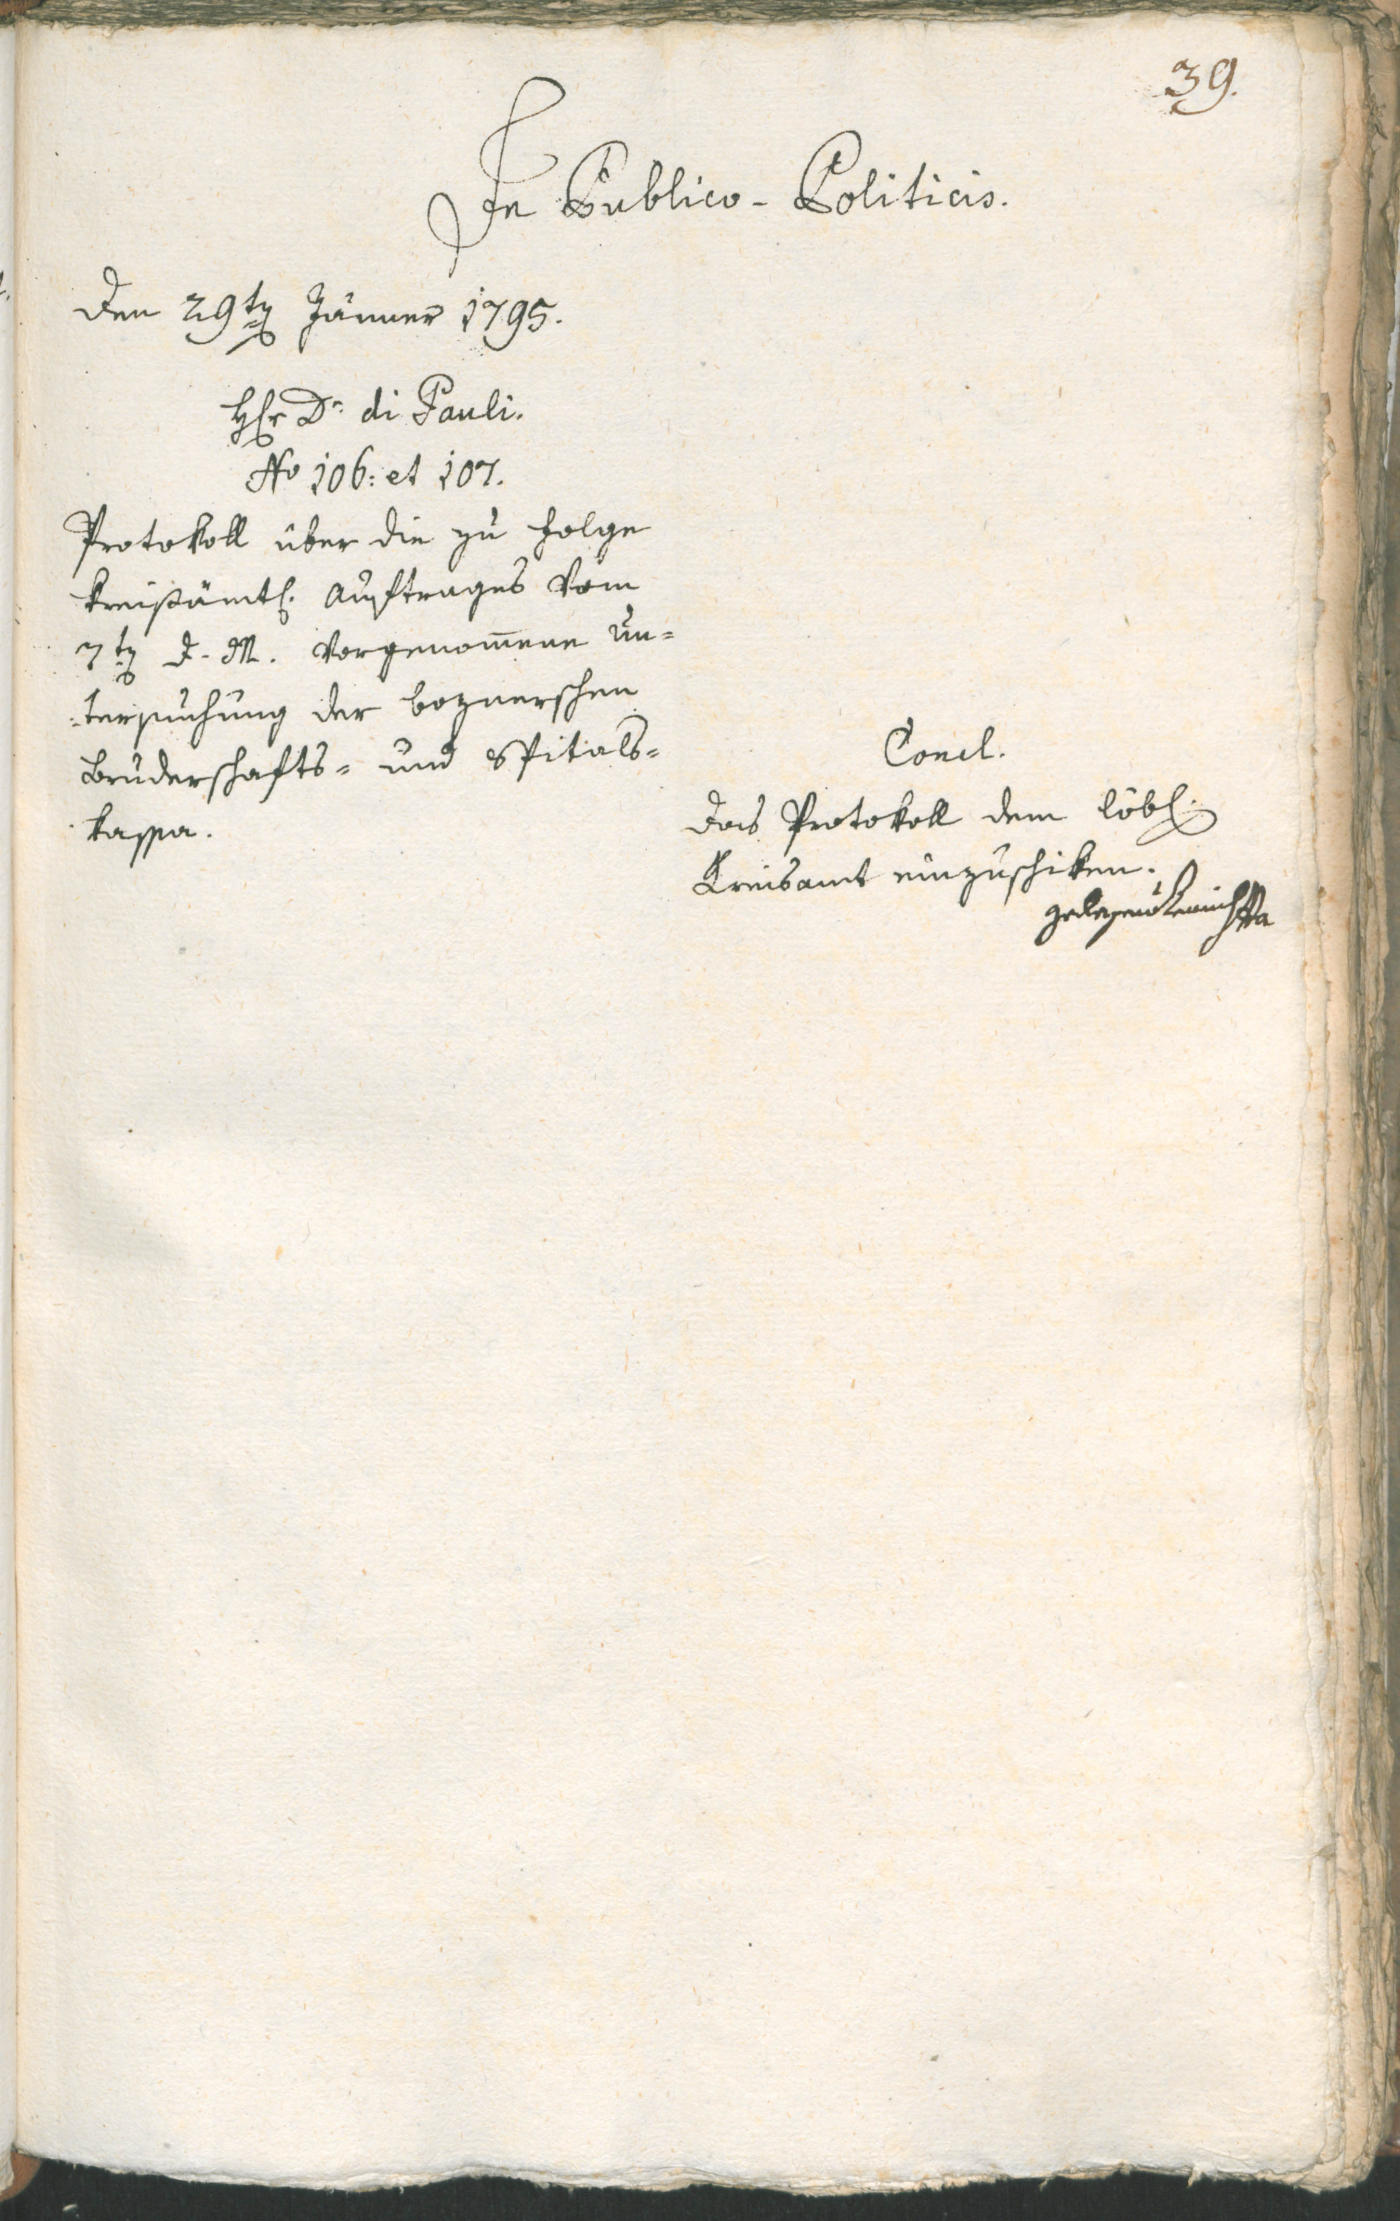 39.
In Publico-Politicis.
Den 29ten Jänner 1795.
Hr Dr di Pauli.
No 106: et 107.
Protokoll über die zu folge
kreißämtl. Auftrages vom
7ten d. M. vorgenom̄ene Un=
=tersuchung der boznerschen
Bruderschafts= und Spitals=
kassa.
Concl.
Das Protokoll dem löbl.
Kreisamt einzuschiken.